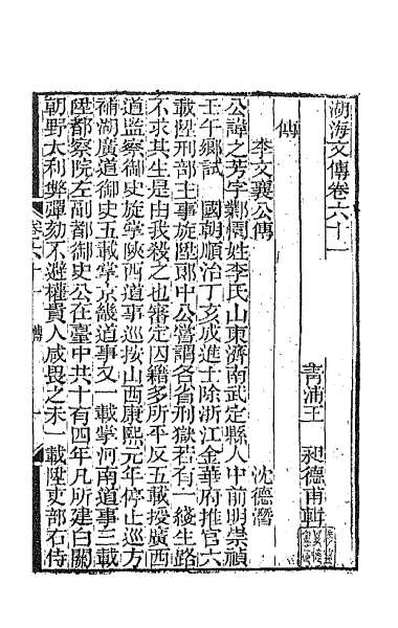 湖海文傳卷六十一
青浦王 昶德甫輯
傳
李文襄公傳 沈德潛
公諱之芳字鄴園姓李氏山東濟南武定縣人中前明崇禎
壬午鄉試 國朝順治丁亥成進士除浙江金華府推官六
載陞刑部主事旋陞郎中公嘗謂各省刑獄若有一綫生路
不求其生是由我殺之也審定囚籍多所平反五載授廣西
道監察御史旋掌陝西道事巡按山西康熙元年停止巡方
補湖廣道御史五載掌京畿道事又一載掌河南道事三載
陞都察院左副都御史公在臺中共十有四年凡所建白關
朝野大利弊彈劾不避權貴人咸畏之未一載陞吏部右侍
卷六十一 傳 一